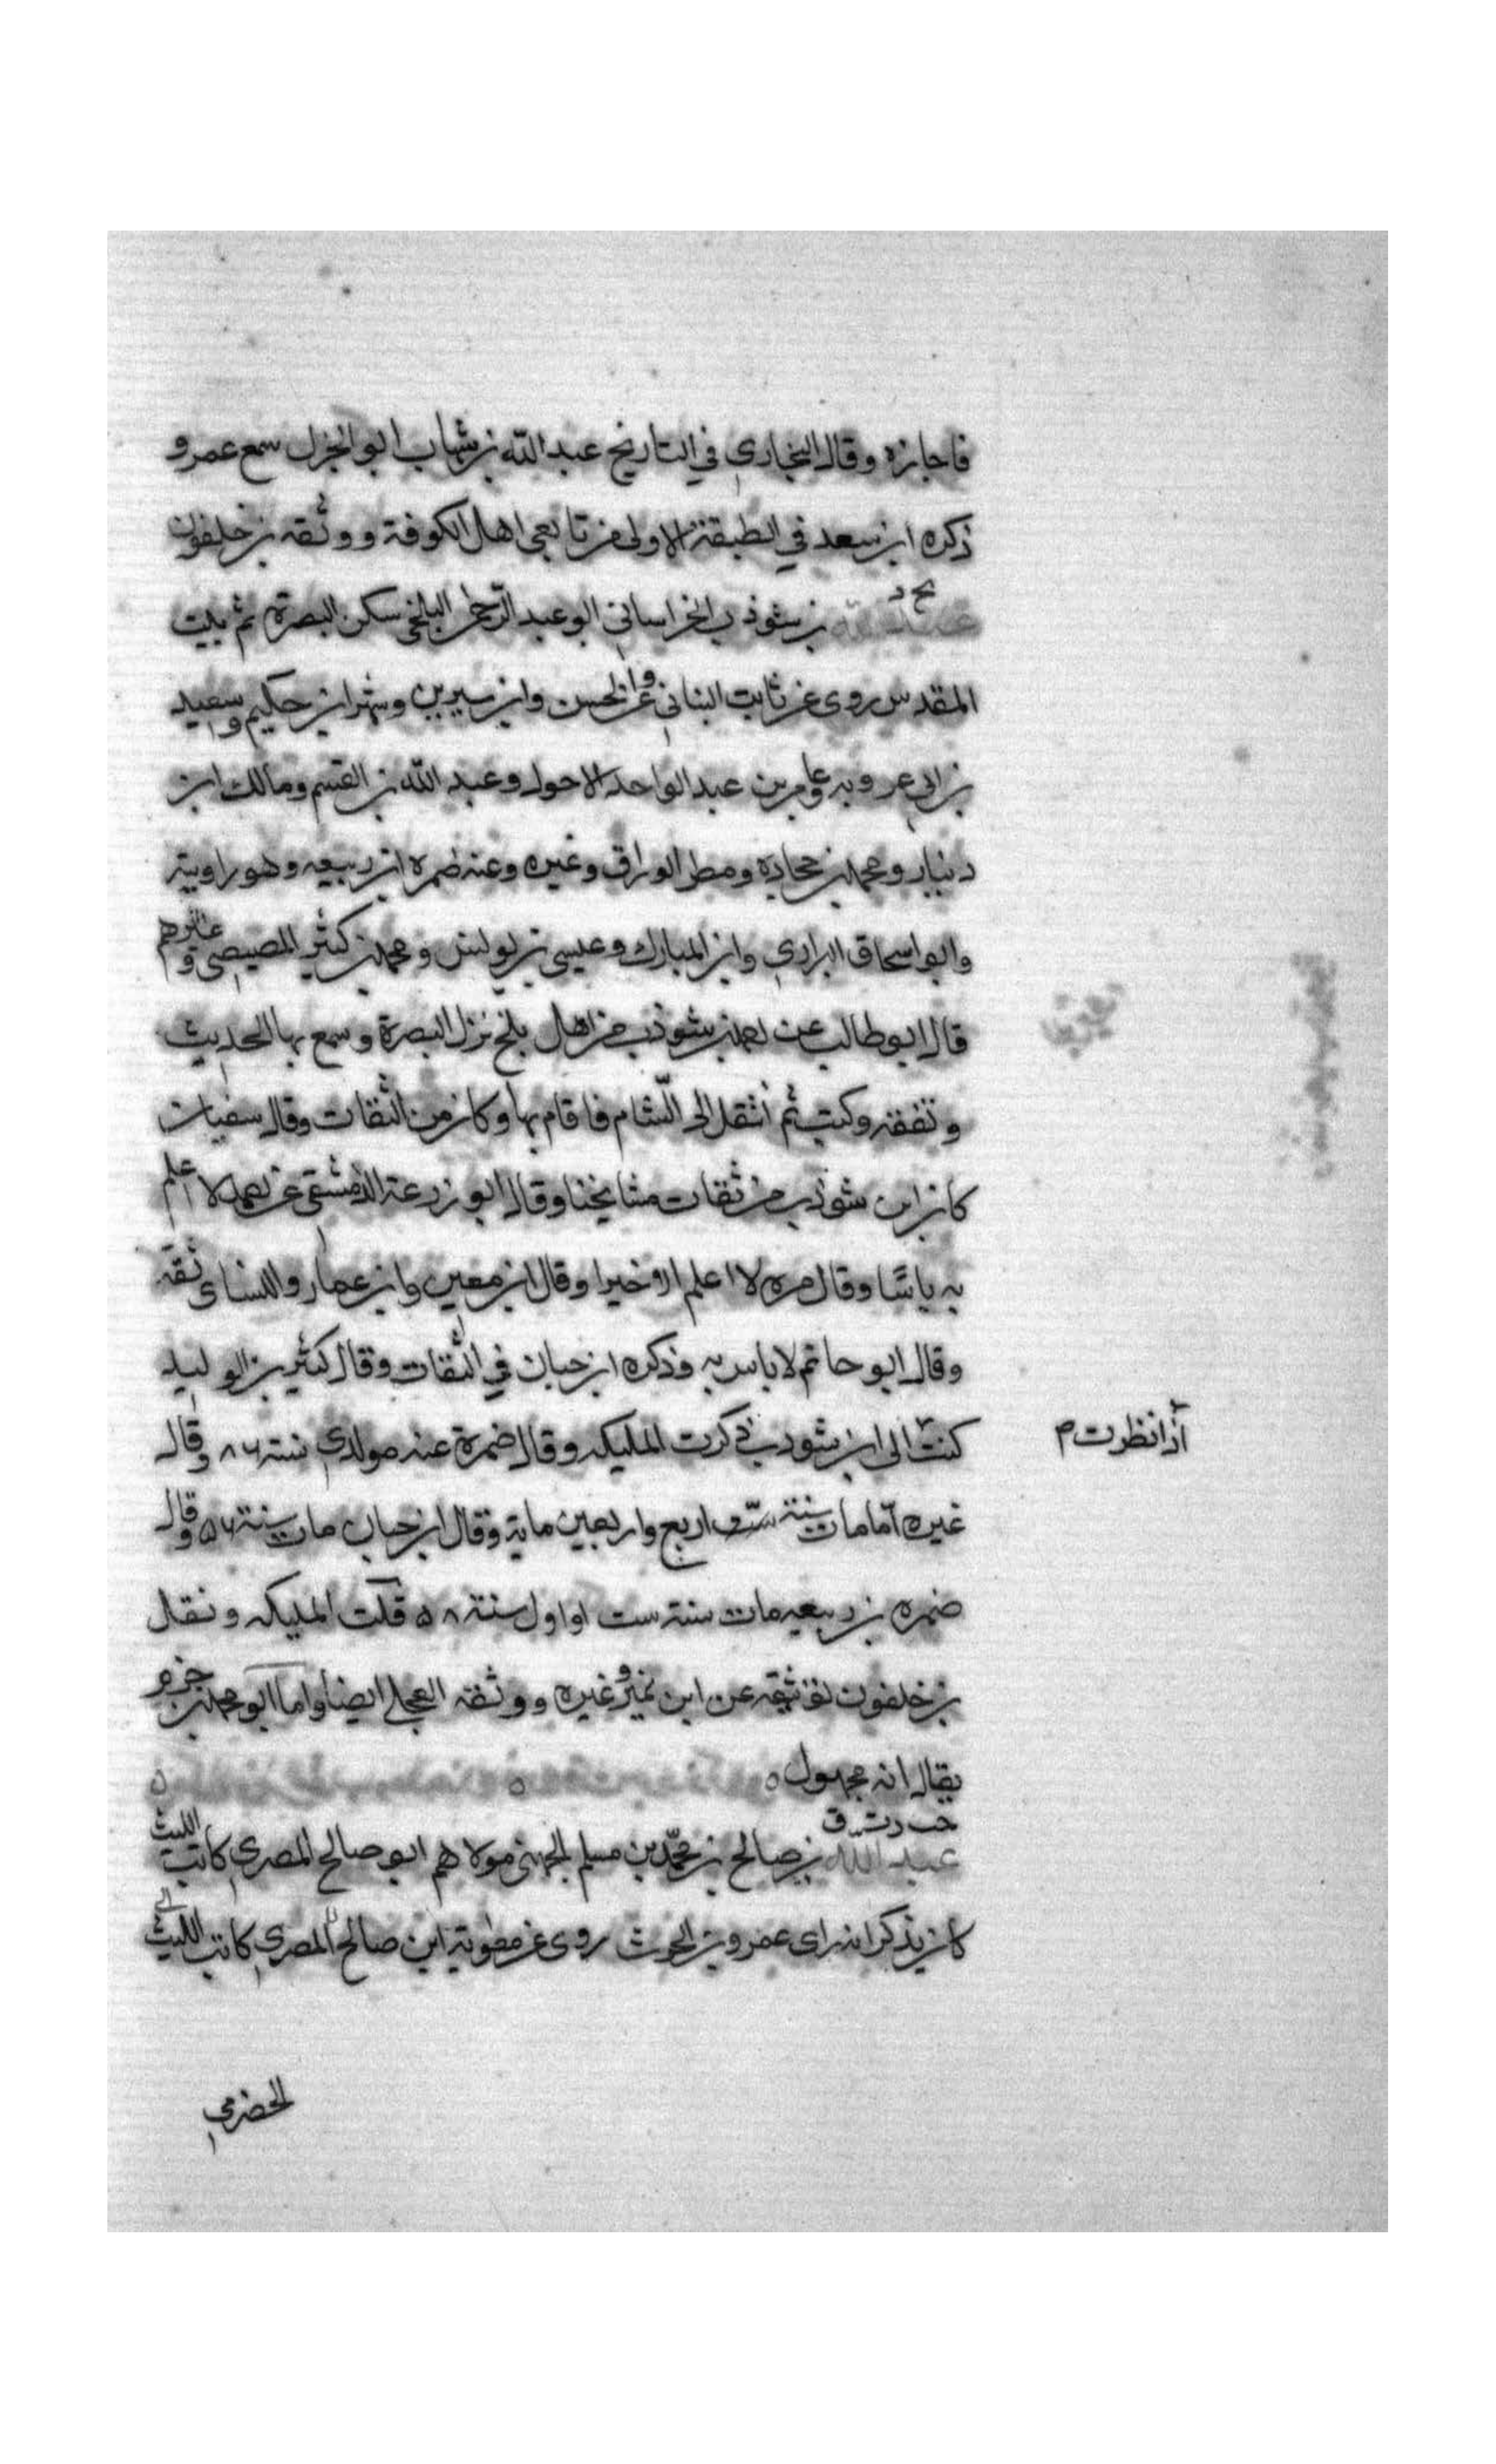 فاجازه وقال البخاري في التاريخ عبد الله بن شهاب ابو الجزل سمع عمر و
ذكره ابن سعد في الطبقة الاولى من تابعي اهل الكوفة ووثقه بن خلفون
بخ د
بن شوذب الخراساني ابو عبد الرحمن البلخي سكن البصرة ثم بيت
المقدس روى عن ثابت البناني والحسن وابن سيرين وشهر ابن حكيم وسعيد
بن ابي عروبه وعامر بن عبد الواحد الاحول وعبد الله بن القسم ومالك ابن
دينار ومحمد بن جحادة ومطر الوراق وغيره وعنه ضمره ابن ربيعه وهو راويته
وابو اسحاق الفزاري وابن المبارك وعيسى بن يونس ومحمد بن كثير المصيصي وغيرهم
قال ابو طالب عن احمد بن شوذب من اهل بلخ نزل البصرة وسمع بها الحديث
وتفقه وكتب ثم انتقل الى الشام فاقام بها وكان من الثقات وقال سفيان
كان ابن شوذب من ثقات مشايخنا وقال ابو زرعة الدمشقي عن احمد لا اعلم
به باسا وقال مره لا اعلم الا خيرا وقال ابن معين وابن عمار والنساى ثقة
وقال ابو حاتم لا باس به وذكره ابن حبان في الثقات وقال كثير بن الوليد
كنت الى ابن شوذب ذكرت المليكه وقال ضمرة عنه مولدي سنة ٨٦ وقال
اذا نظرت م
غيره مات سنة اربع واربعين ماية وقال ابن حبان مات سنة ٥٦ وقال
ضمره بن ربيعه مات سنة ست او اول سنة ٥٨ قلت المليكه ونقل
بن خلفون توثيقه عن ابن نمير وغيره ووثقه العجلي ايضا واما ابو محمد بن حزم
يقال انه مجهول ه
خت د ت ق
عبد الله بن صالح بن محمد بن مسلم الجهني مولاهم ابو صالح المصري كاتب الليث
كان يذكر انه راى عمرو بن الحرث روى عن معوية ابن صالح المصري كاتب الليث
الحضرمي